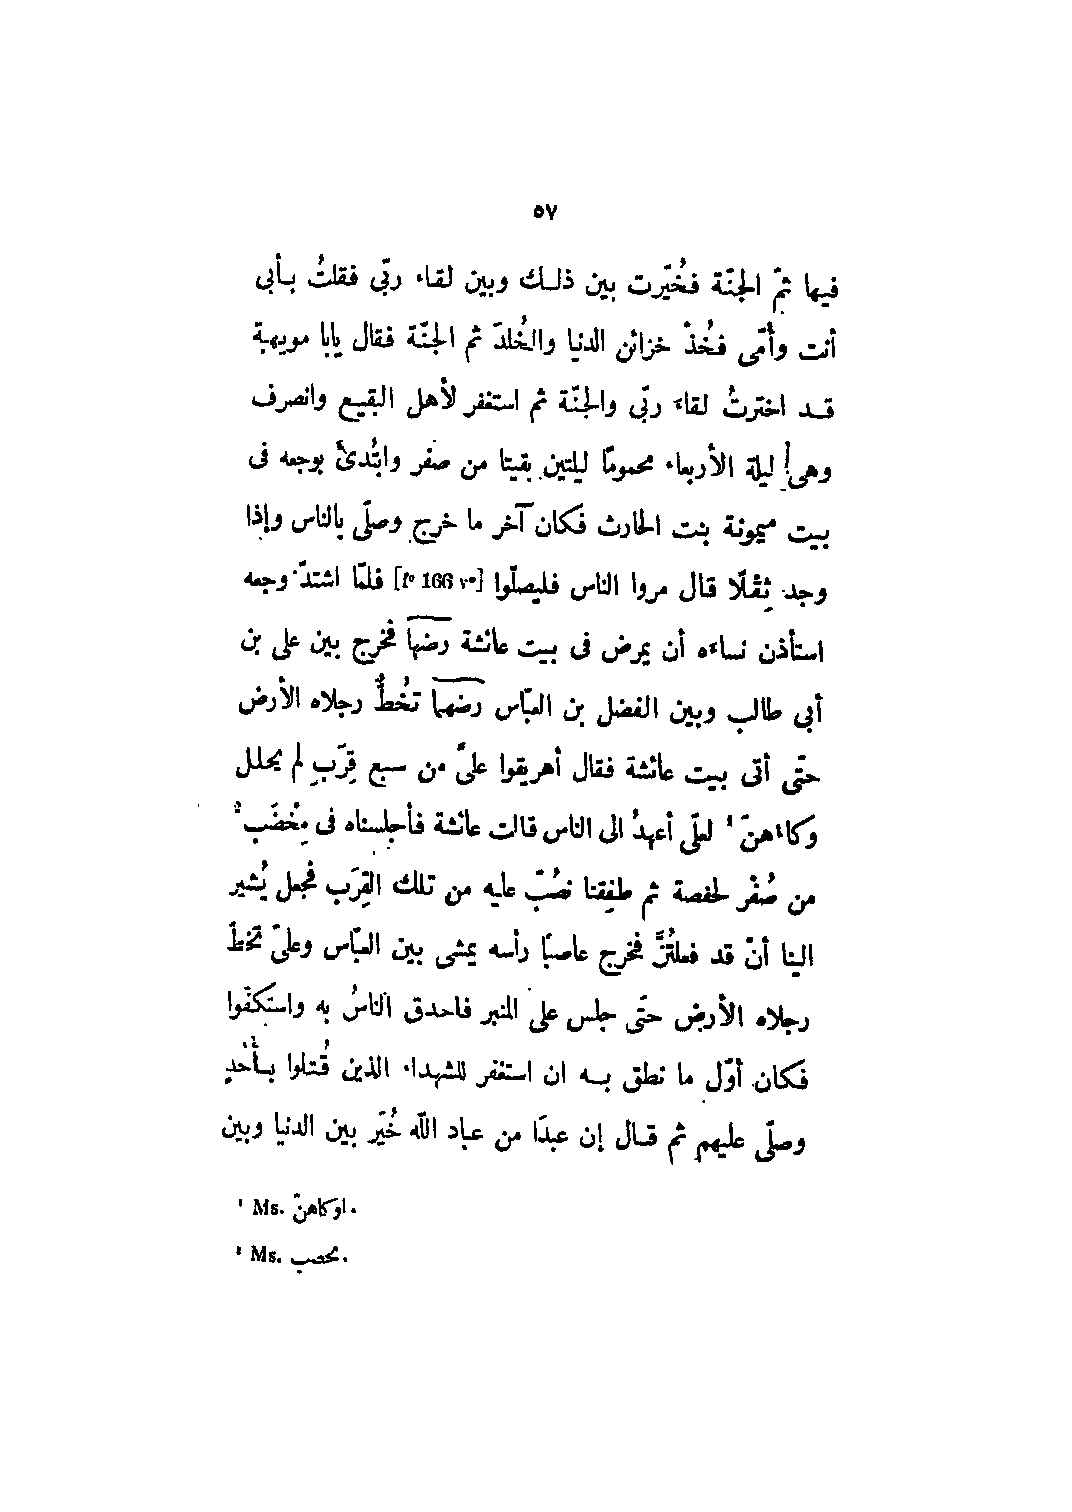 ٥٧
فيها ثمّ الجنّة فخُيّرت بين ذلك وبين لقاء ربّى فقلتُ بأبى
أنت وأُمّى فخُذْ خزائن الدنيا والخُلدَ ثم الجنّة فقال يابا مويهبة
قد اخترتُ لقاء ربّى والجنّة ثم استغفر لأهل البقيع وانصرف
وهى ليلة الأربعاء محمومًا ليلتين بقيتا من صفر وابتُدئَ بوجعه فى
بيت ميمونة بنت الحارث فكان آخر ما خرج وصلّى بالناس وإذا
وجد ثِقْلًا قال مروا الناس فليصلّوا [f° 166 v°] فلمّا اشتدّ وجعه
استأذن نساءه أن يمرض فى بيت عائشة رضها فخرج بين على بن
أبى طالب وبين الفضل بن العبّاس رضهما تخُطُّ رجلاه الأرض
حتّى أتى بيت عائشة فقال أهريقوا علىَّ من سبع قِرَبٍ لم يحلل
وكاءهنّ ¹ لعلّى أعهدُ الى الناس قالت عائشة فأجلسناه فى مِخْضَب ²
من صُفْر لحفصة ثم طفِقنا نصُبّ عليه من تلك القِرَب فجعل يُشير
الينا أنْ قد فعلتُنَّ فخرج عاصبًا رأسه يمشى بين العبّاس وعلىّ تخطّ
رجلاه الأرض حتّى جلس على المنبر فاحدق الناسُ به واستكفّوا
فكان أوّل ما نطق به ان استغفر للشهداء الذين قُتلوا بأُحدٍ
وصلّى عليهم ثم قال إن عبدًا من عباد اللّه خُيّر بين الدنيا وبين
¹ Ms. اوكاهنّ.
² Ms. محصب.